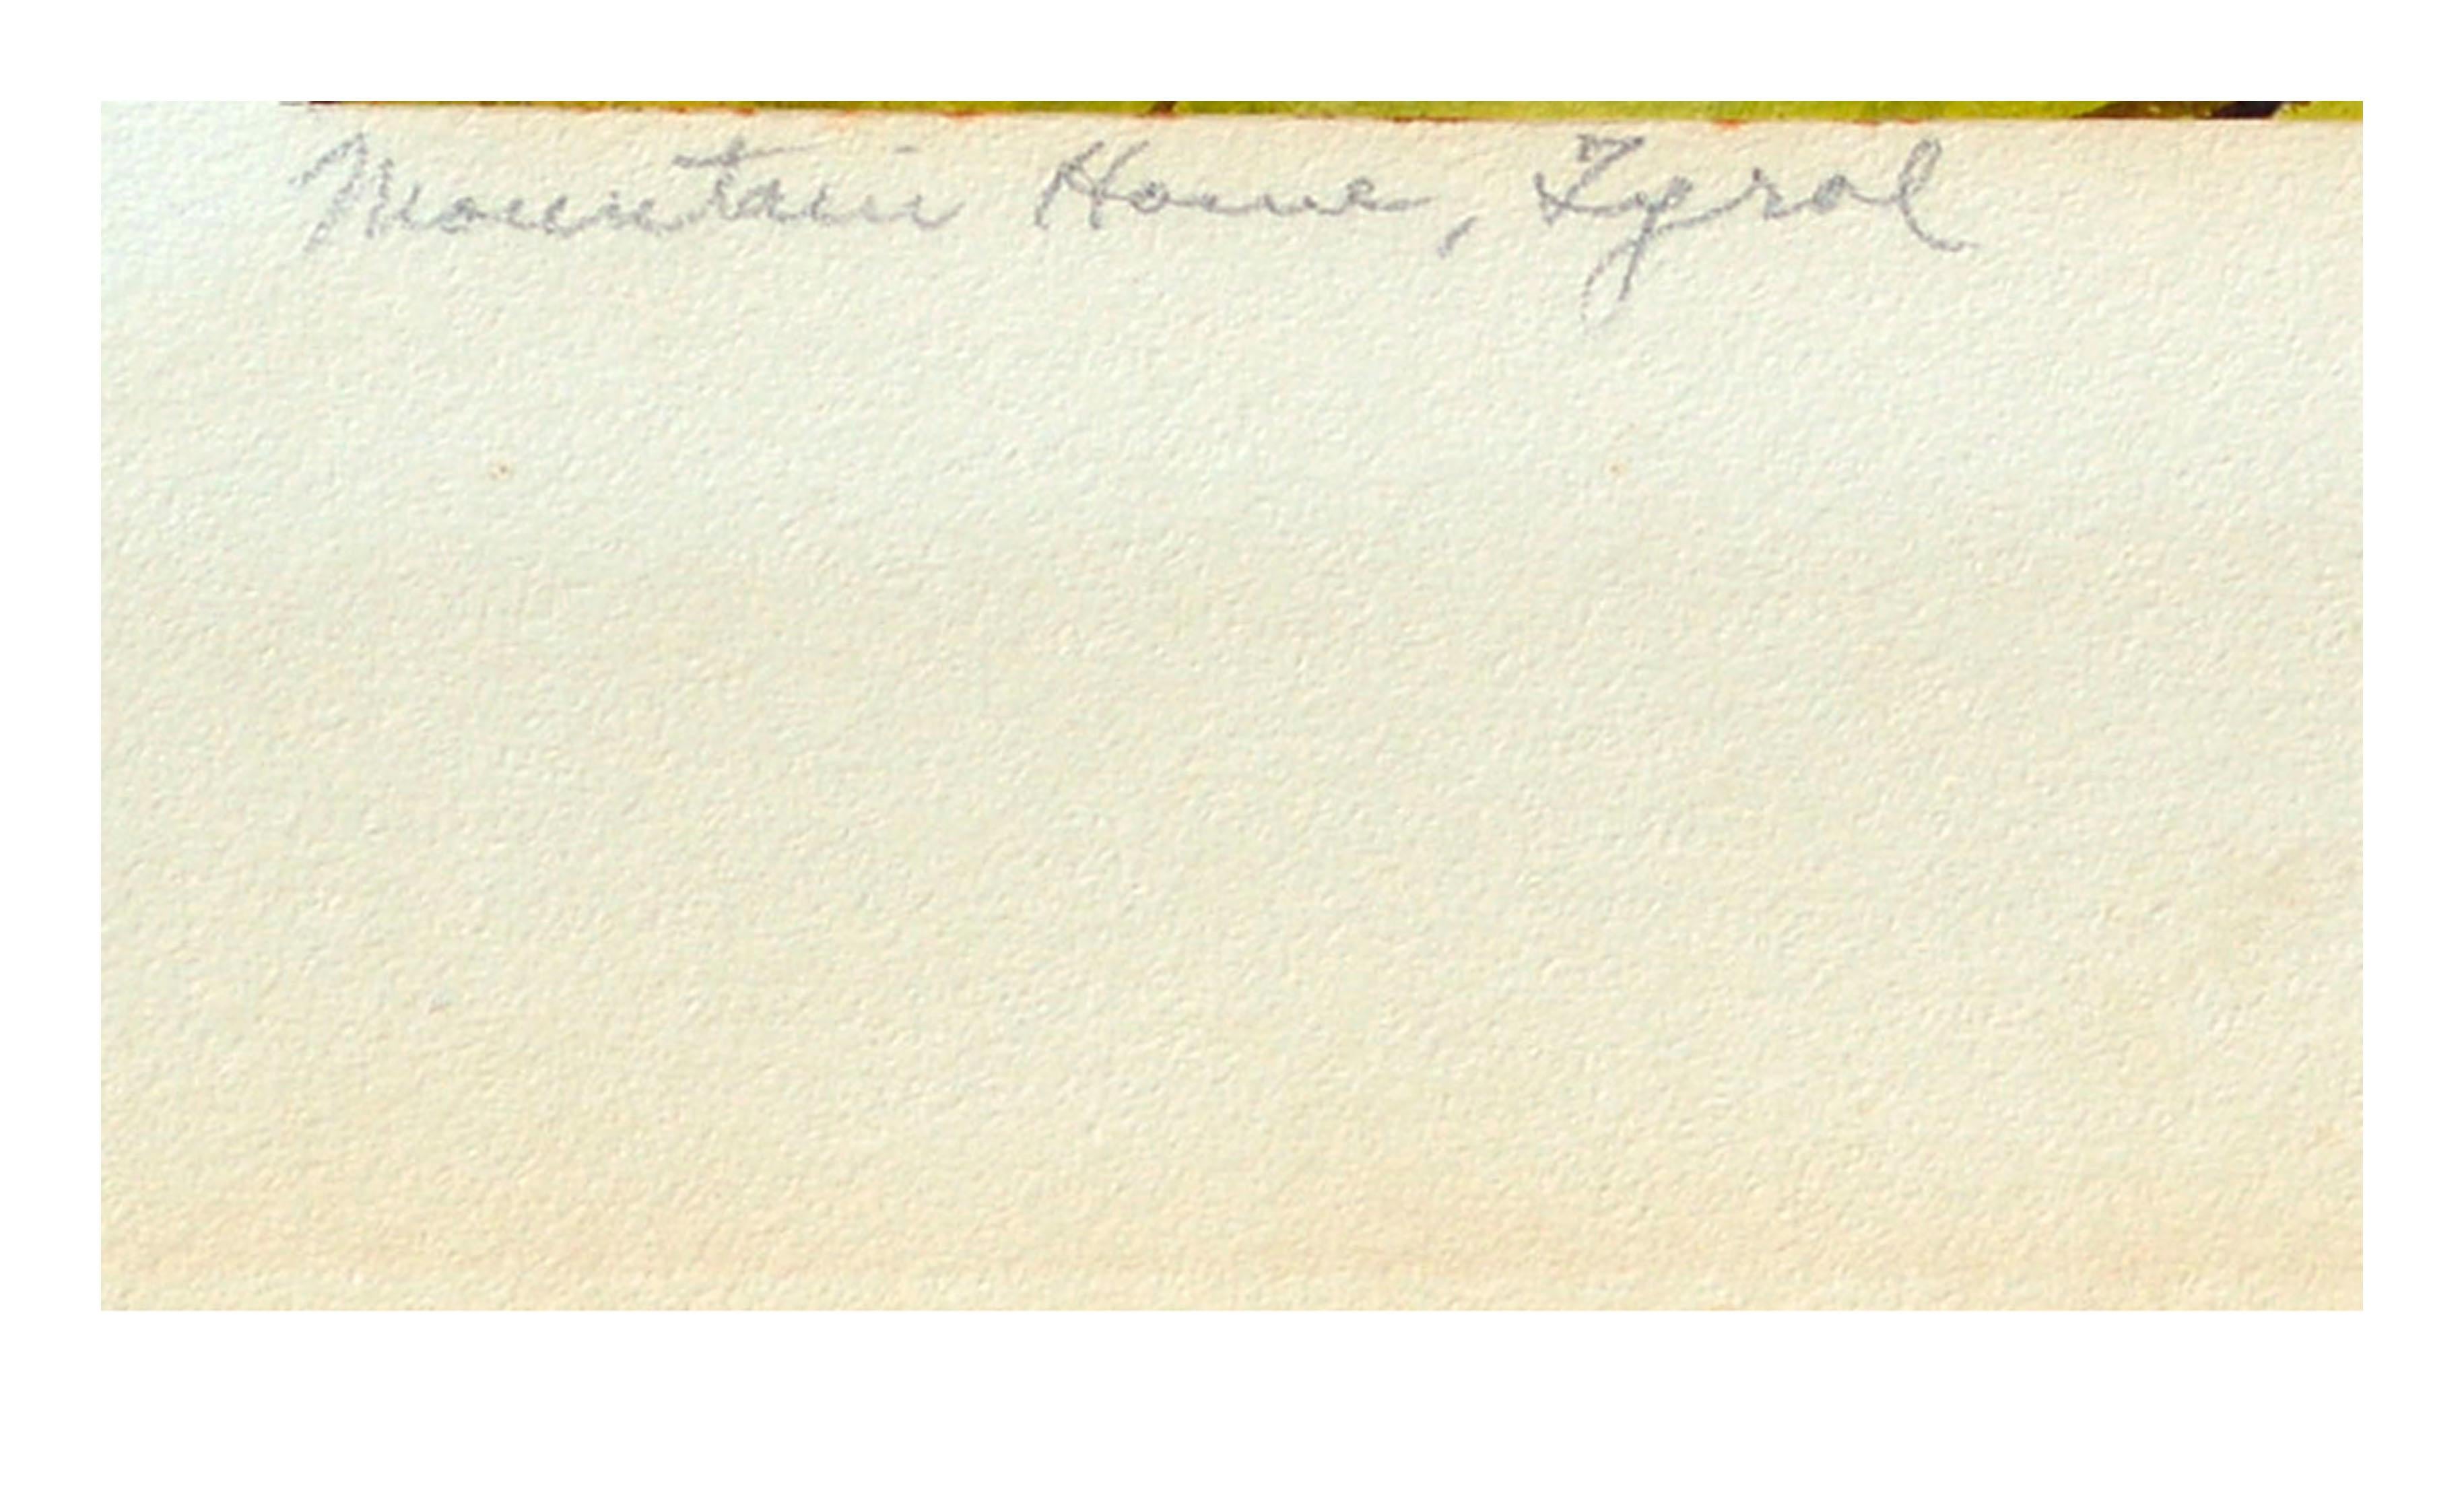 Mountain Home, Tyrol